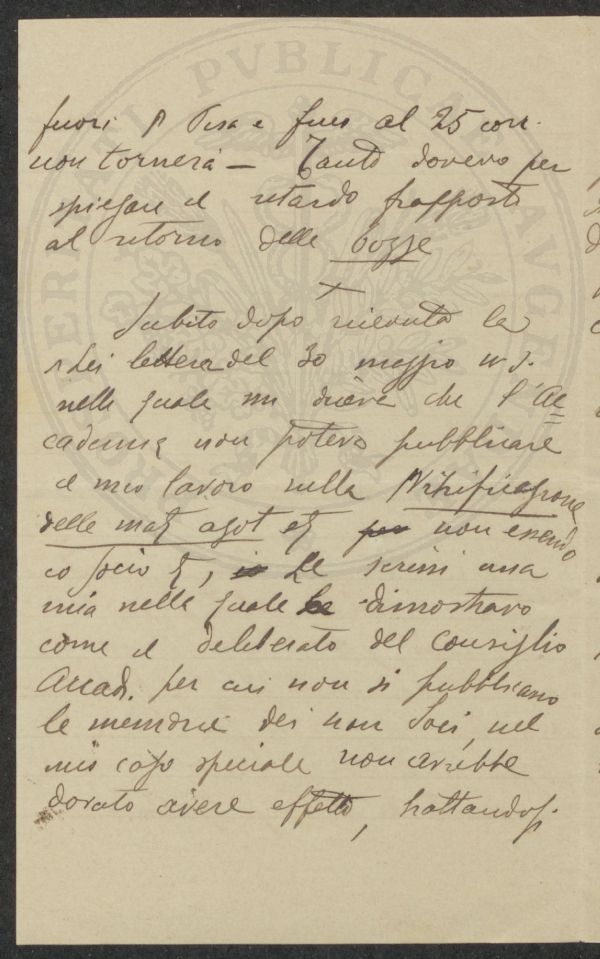 fuori Pisa e fino al 25 corr.
non tornerà — Tanto dovevo per
spiegare il ritardo frapposto
al ritorno delle bozze
Subito dopo ricevuta la
di Lei lettera del 30 maggio u. s.
nella quale mi diceva che l'Ac
cademia non poteva pubblicare
il mio lavoro sulla Nitrificazione
delle mat azot et per non essendo
io socio, Le scrissi una
mia nella quale Le dimostravo
come il deliberato del Consiglio
Accad. per cui non si pubblicano
le memorie dei non Soci, nel
mio caso speciale non avrebbe
dovuto avere effetto, trattandosi